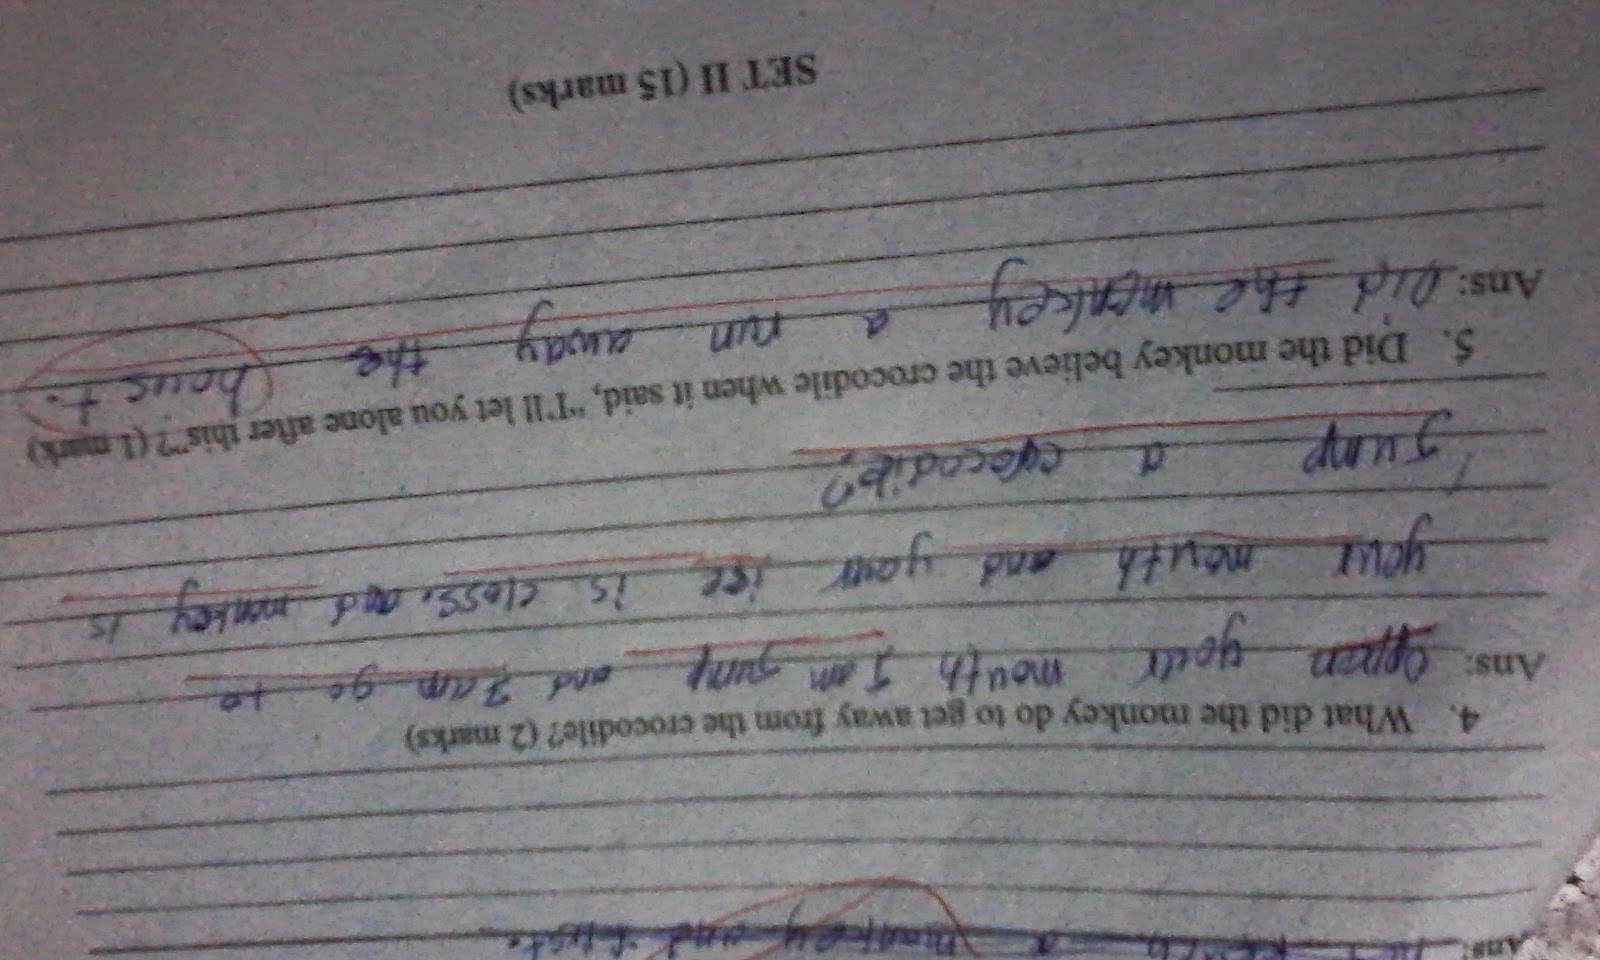 Ans: a monkey and
4. What did the monkey do to get away from the crocodile? (2 marks)
Ans: Oppen your mouth I am Jump and I am go to
your mouth and your ise is close. and monkey is
Jump a crocodile?
5. Did the monkey believe the crocodile when it said, "I'll let you alone after this"? (1 mark)
Ans: Did the monkey a run away the
SET II (15 marks)